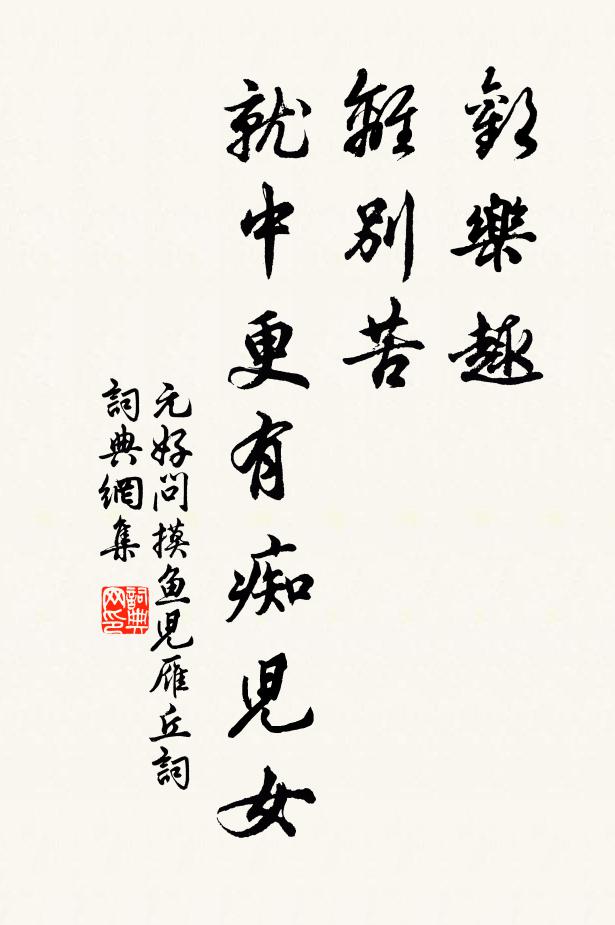 歡樂趣
離別苦
就中更有痴兒女
元好問摸魚兒雁丘詞
詞典網集
詞典网印